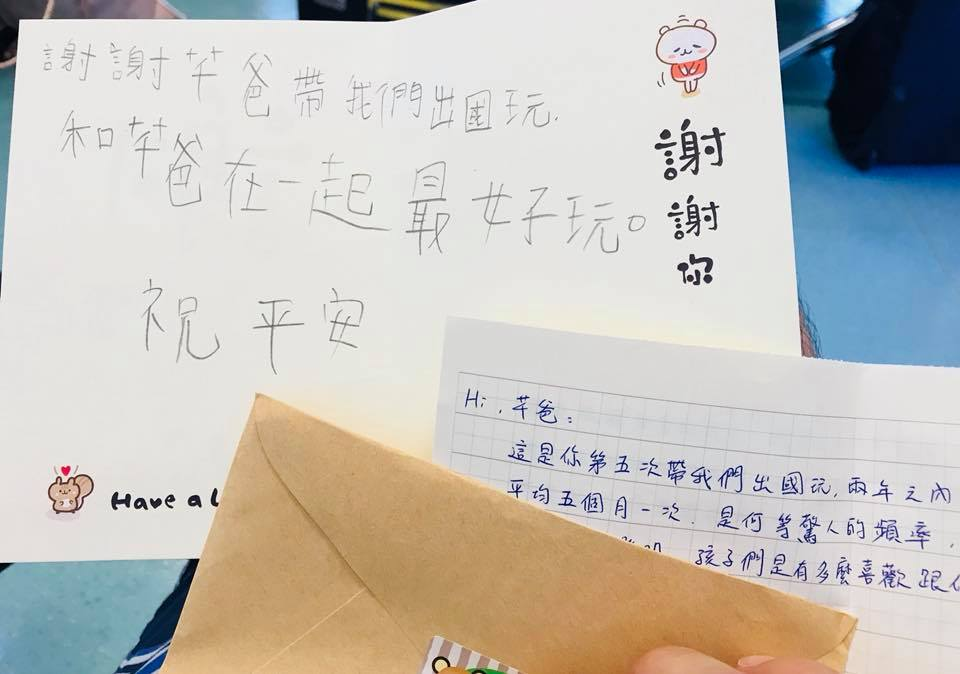 謝謝芊爸帶我們出國玩.
和芊爸在一起最好玩。
祝平安
謝謝你
Have a
Hi, 芊爸：
這是你第五次帶我們出國玩, 兩年之內
平均五個月一次. 是何等驚人的頻率.
孩子們是有多麼喜歡跟